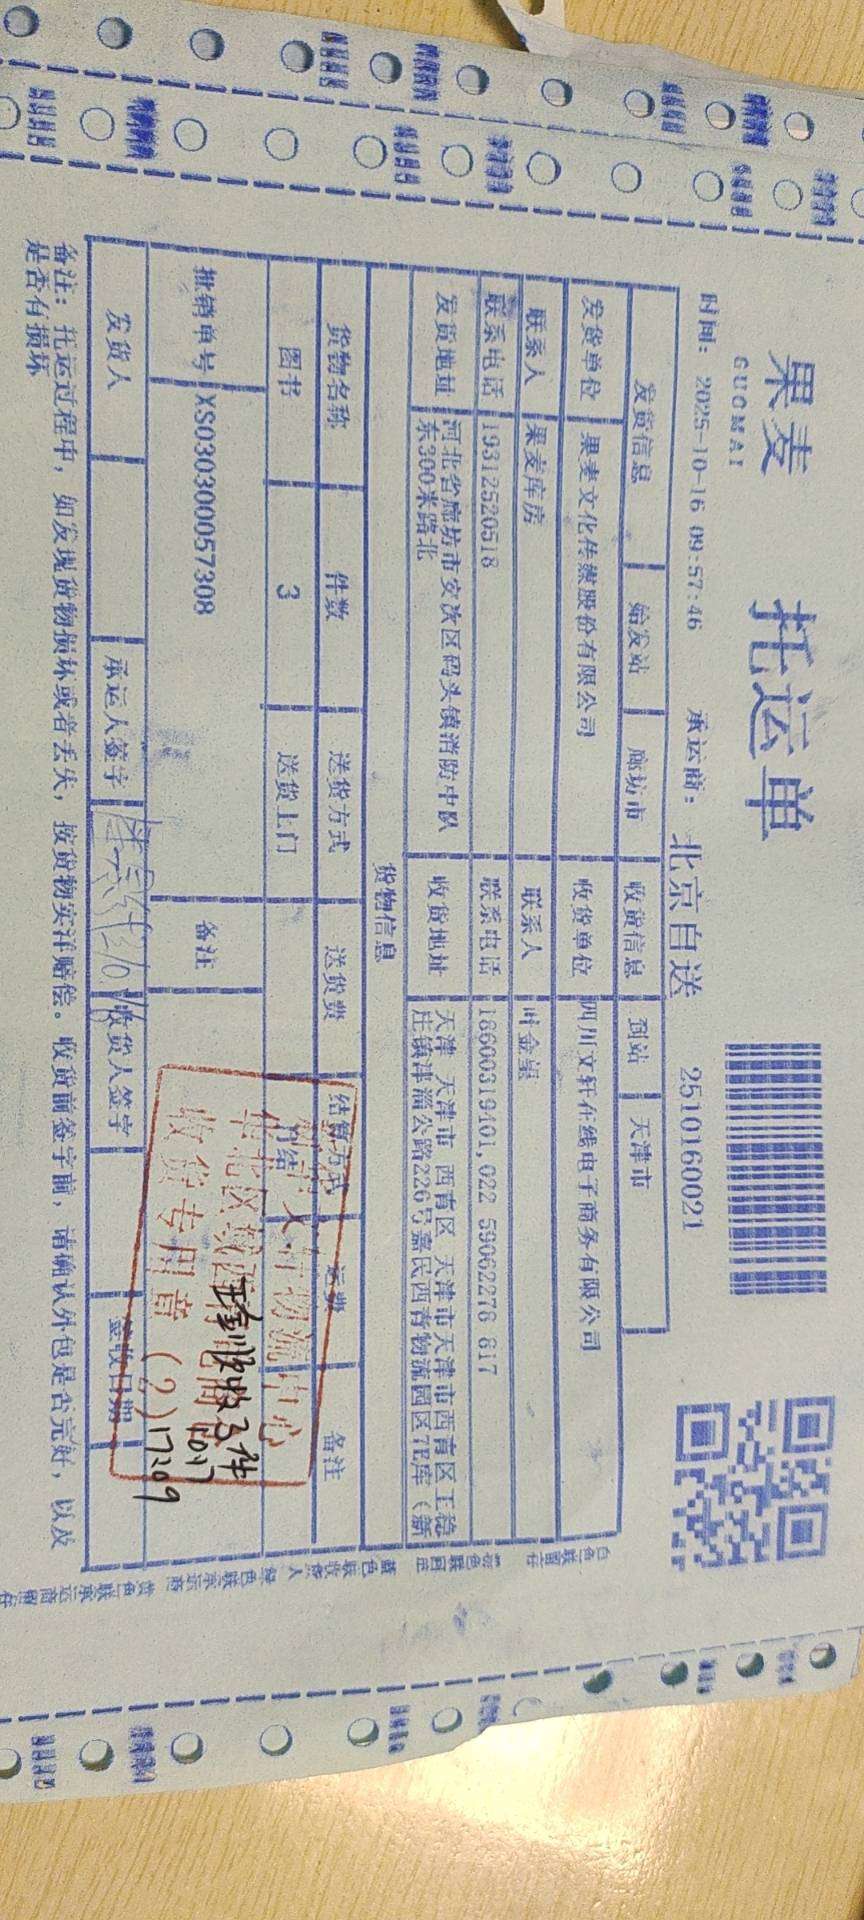 果麦
GUOMAI
托运单
时间: 2025-10-16 09:57:46 承运商: 北京自送 2510160021
发货信息 始发站 廊坊市 收货信息 到站 天津市
发货单位 果麦文化传媒股份有限公司 收货单位 四川文轩在线电子商务有限公司
联系人 果麦库房 联系人 叶金望
联系电话 19312520518 联系电话 18600319401,022 59062278 817
发货地址 河北省廊坊市安次区码头镇消防中队东300米路北 收货地址 天津 天津市 西青区 天津市天津市西青区王稳庄镇津淄公路226号嘉民西青物流园区7E库（新
货物信息
货物名称 件数 送货方式 送货费 结算方式 运费 备注
图书 3 送货上门 月结
批销单号 XS030300057308 备注
发货人 承运人签字 收货人签字 签收日期
备注: 托运过程中, 如发现货物损坏或者丢失, 按货物实洋赔偿。收货前签字前, 请确认外包是否完好, 以及
是否有损坏
物流中心
华北区域
收货专用章
(2)
收3件
1017
17209